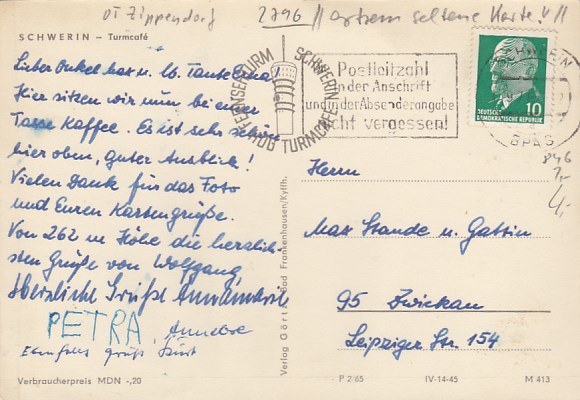 OT Zippendorf
2796 // extrem seltene Karte! //
SCHWERIN – Turmcafé
Lieber Onkel Max u. lb. Tante Erna!
Hier sitzen wir nun bei einer
Tasse Kaffee. Es ist sehr schön
hier oben, guter Ausblick!
Vielen Dank für das Foto
und Euren Kartengrüße.
Von 262 m Höhe die herzlich-
sten Grüße von Wolfgang
Herzliche Grüße
PETRA, Annelore
Ebenfalls grüßt
Verbraucherpreis MDN -,20
FERNSEHTURM
SCHWERIN
HOG TURMCAFE
Postleitzahl
in der Anschrift
und in der Absenderangabe
nicht vergessen!
DEUTSCHE
DEMOKRATISCHE REPUBLIK
10
SCHWERIN
846
7,-
4,-
Herrn
Max Stande u. Gattin
95 Zwickau
Leipziger Str. 154
Verlag Gört Bad Frankenhausen/Kyffh.
P 2/65
IV-14-45
M 413